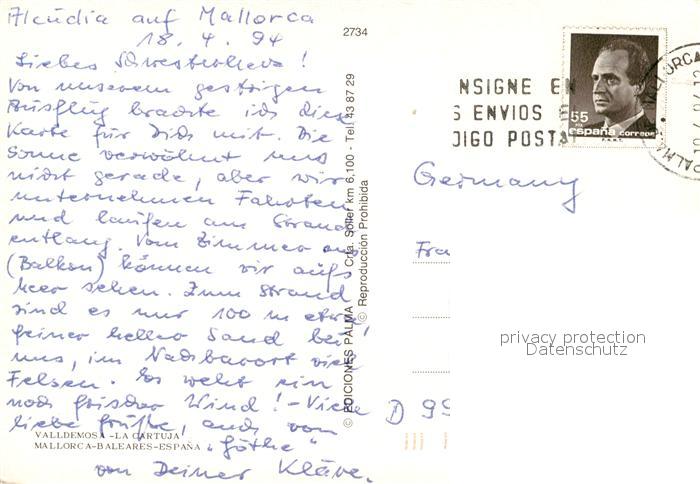 Alcúdia auf Mallorca
18. 4. 94
Liebes Schwesterherz!
Von unserem gestrigen
Ausflug brachte ich diese
Karte für Dich mit. Die
Sonne verwöhnt uns
nicht gerade, aber wir
unternehmen Fahrten
und laufen am Strand
entlang. Vom Zimmer aus
(Balkon) können wir aufs
Meer sehen. Zum Strand
sind es nur 100 m etwa,
feiner heller Sand bei
uns, im Nachbarort viele
Felsen. Es weht ein
noch frischer Wind! - Viele
liebe Grüße, auch vom
"Göthe"
von Deiner Kläre.
VALLDEMOSA - LA CARTUJA
MALLORCA-BALEARES-ESPAÑA
2734
© EDICIONES PALMA Crta. Sóller km 6,100 - Tel. 43 87 29
© Reproducción Prohibida
NSIGNE EN
S ENVIOS E
DIGO POSTA
55
PTA
españa correos
F.N.M.T.
MALLORCA
PALMA
Germany
Fra
D 99
privacy protection
Datenschutz